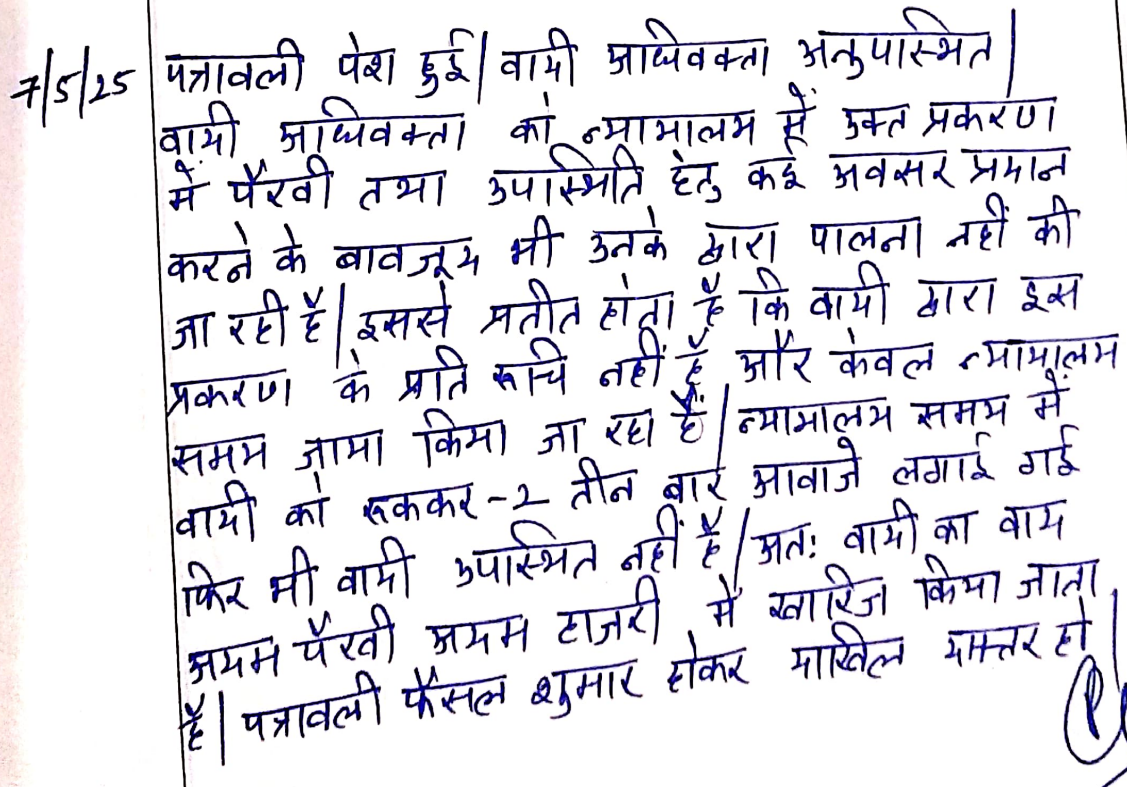 7/5/25 पत्रावली पेश हुई। वादी अधिवक्ता अनुपास्थित।
वादी अधिवक्ता को न्यायालय में उक्त प्रकरण
में पैरवी तथा उपास्थिति हेतु कई अवसर प्रदान
करने के बावजूद भी उनके द्वारा पालना नहीं की
जा रही है। इससे प्रतीत होता है कि वादी द्वारा इस
प्रकरण के प्रति रूचि नहीं है और केवल न्यायालय
समय जाया किया जा रहा है। न्यायालय समय में
वादी को रूककर-2 तीन बार आवाजे लगाई गई
फिर भी वादी उपास्थित नहीं है। अतः वादी का वाद
अदम पैरवी अदम हाजरी में खारिज किया जाता
है। पत्रावली फैसल शुमार होकर दाखिल दफ्तर हो।